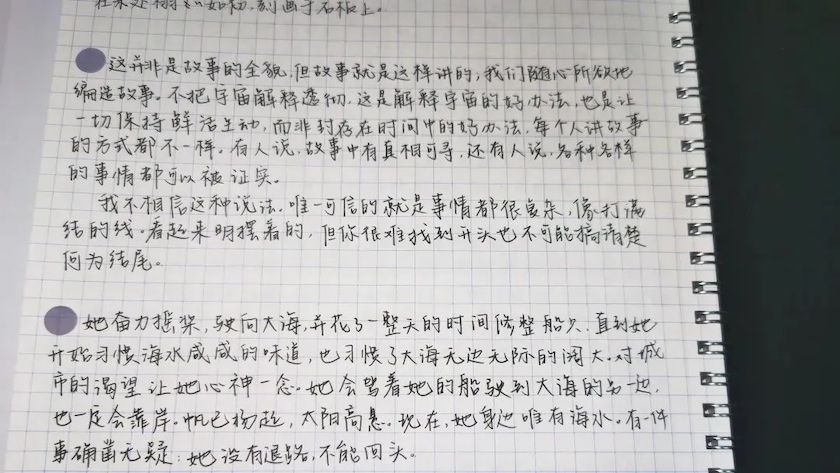 刻画于石板上。
这并非是故事的全貌,但故事就是这样讲的,我们随心所欲地
编造故事。不把宇宙解释透彻,这是解释宇宙的好办法,也是让
一切保持鲜活生动,而非封存在时间中的好办法,每个人讲故事
的方式都不一样。有人说,故事中有真相可寻,还有人说,各种各样
的事情都可以被证实。
我不相信这种说法,唯一可信的就是事情都很复杂,像打满
结的线。看起来明摆着的,但你很难找到开头也不可能搞清楚
何为结尾。
她奋力摇桨,驶向大海,并花了一整天的时间修整船只,直到她
开始习惯海水咸咸的味道,也习惯了大海无边无际的阔大。对城
市的渴望让她心神一念。她会驾着她的船驶到大海的另一边,
也一定会靠岸。帆已扬起,太阳高悬。现在,她身边唯有海水。有一件
事确凿无疑:她没有退路,不能回头。